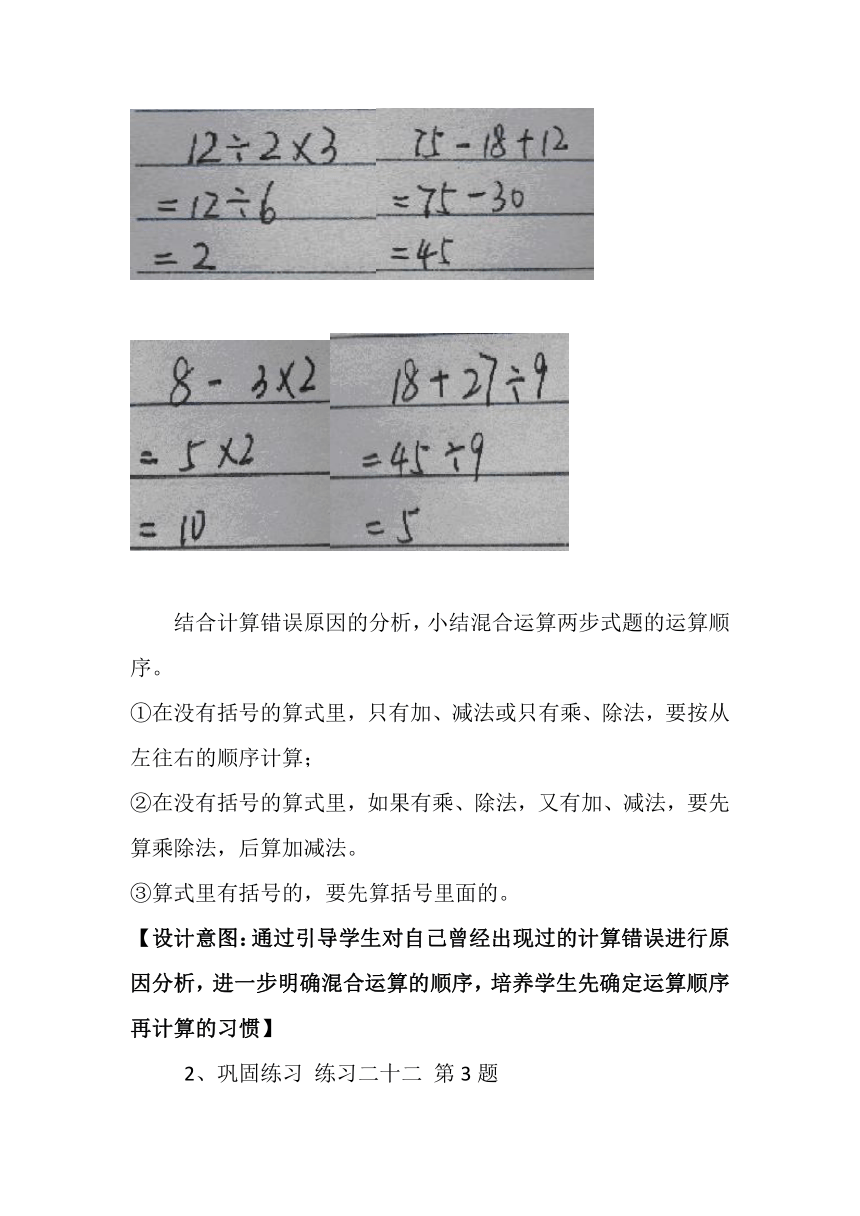 12÷2×3
=12÷6
=2
75-18+12
=75-30
=45
8-3×2
=5×2
=10
18+27÷9
=45÷9
=5
结合计算错误原因的分析，小结混合运算两步式题的运算顺
序。
①在没有括号的算式里，只有加、减法或只有乘、除法，要按从
左往右的顺序计算；
②在没有括号的算式里，如果有乘、除法，又有加、减法，要先
算乘除法，后算加减法。
③算式里有括号的，要先算括号里面的。
【设计意图：通过引导学生对自己曾经出现过的计算错误进行原
因分析，进一步明确混合运算的顺序，培养学生先确定运算顺序
再计算的习惯】
2、巩固练习 练习二十二 第 3 题